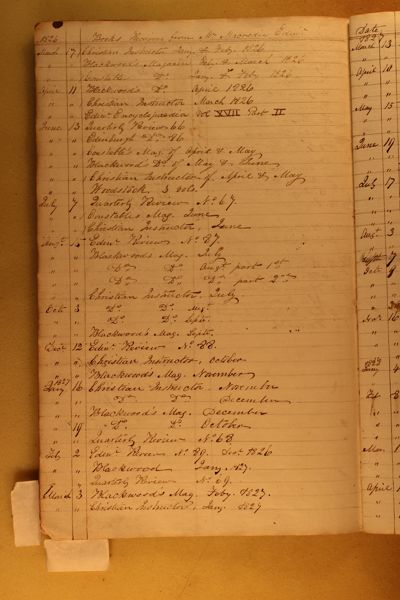 1826 Books Received from Mr Edinr
March 17 Christian Instructor Jany & Feby 1826
" " Blackwood's Magazine Feby & March 1826
" " Constable's Do Jany & Feby 1826
April 11 Blackwood's Do April 1826
" " Christian Instructor March 1826
" " Edinr Encyclopaedia Vol XVII Part II
June 13 Quarterly Review 66
" " Edinburgh Do 86
" " Constable's Mag. of April & May
" " Blackwood's Do of May & June
" " Christian Instructor of April & May
" " Woodstock 3 vols.
July 7 Quarterly Review No 67.
" " Constables Mag. June
" " Christian Instructor, June
Augt 15 Edinr Review No 87.
" " Blackwoods Mag. July
" " Do Do Augt part 1st
" " Do Do Do part 2nd
" " Christian Instructor. July
Octr 3 Do Do Augt
" " Do Do Septr
" " Blackwood's Mag. Septr
12 Edinr Review No 88.
" " Christian Instructor, October
" " Blackwoods Mag. November
1827
Jany 16 Christian Instructor. November
" " Do Do December
" " Blackwood's Mag. December
" 19 Do Do October
" " Quarterly Review No 68
Feby 2 Edinr Review No 89. 1826
" " Blackwood Jany. 1827.
" " Quarterly Review No 69.
March 3 Blackwood's Mag. Feby. 1827.
" " Christian Instructor, Jany. 1827
Date
1827
March 13
April 10
May 15
June 19
July 17
Augt 3
Octr 9
Novr 16
Jany 4
Feby 8
Mar. 1
April